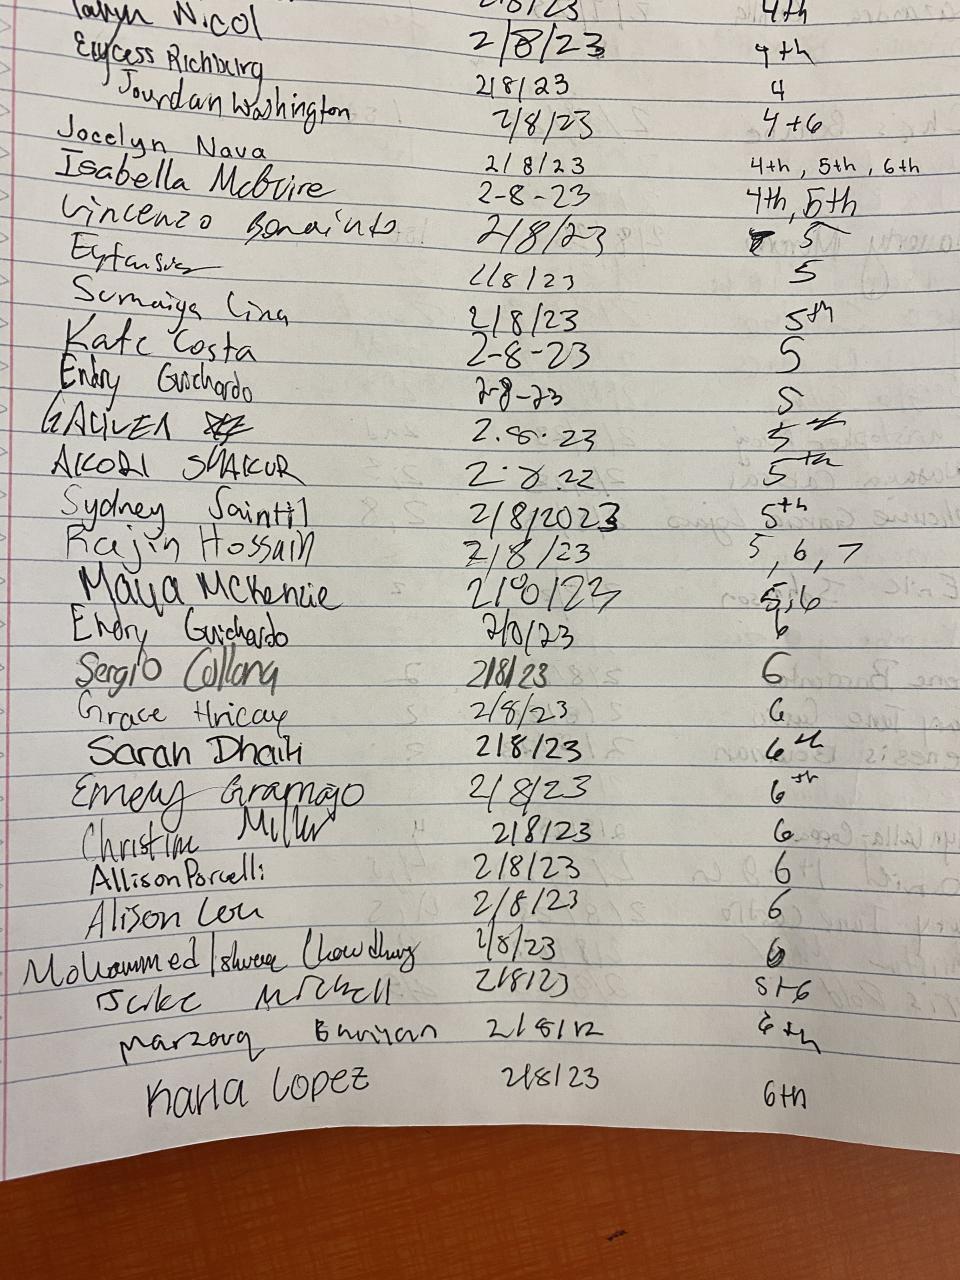 Nicol 2/8/23 4th
Richburg 2/8/23 4th
Jourdan Washington 2/8/23 4
2/8/23 4+6
Jocelyn Nava 2/8/23 4th, 5th, 6th
Isabella McGuire 2-8-23 4th, 5th
Vincenzo 2/8/23 5
2/8/23 5
Sumaiya Lina 2/8/23 5th
Kate Costa 2-8-23 5
Endry Guichardo 2-8-23 5
2.8.23 5th
AKORI SHAKUR 2.8.22 5th
Sydney Saintil 2/8/2023 5th
Rajin Hossain 2/8/23 5, 6, 7
Maya McKenzie 2/8/23 5,6
Endry Guichardo 2/8/23 6
Sergio 2/8/23 6
Grace Hricay 2/8/23 6
Sarah 2/8/23 6th
Emely Gramajo 2/8/23 6th
Christine Miller 2/8/23 6
Allison Porcelli 2/8/23 6
Alison Leu 2/8/23 6
Mohammed Chowdhury 2/8/23 6
Mitchell 2/8/23 5+6
Marzouq 2/8/12 6th
Karla Lopez 2/8/23 6th